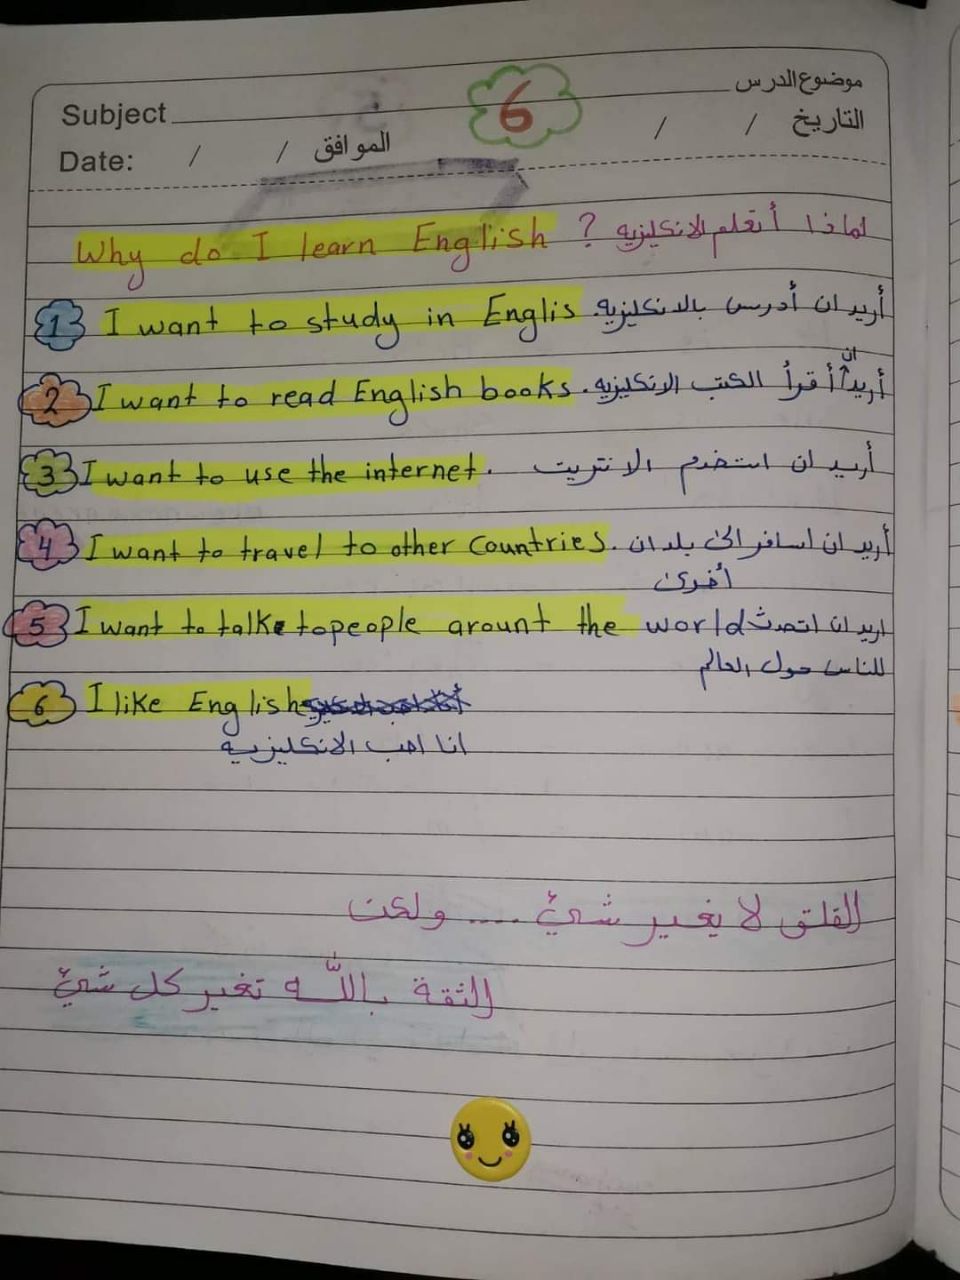 موضوع الدرس
Subject
6
التاريخ / /
Date: / / الموافق
Why do I learn English ? لماذا أتعلم الانكليزيه
1 I want to study in Englis. أريد ان أدرس بالانكليزيه
2 I want to read English books. أريد ان أقرأ الكتب الانكليزيه
3 I want to use the internet. أريد ان استخدم الانتريت
4 I want to travel to other Countries. أريد ان اسافر الى بلدان
أخرى
5 I want to talke to people arount the world اريد ان اتحدث
للناس حول العالم
6 I like English
انا احب الانكليزيه
القلق لا يغير شيئ .... ولكن
الثقة باللّه تغير كل شيئ